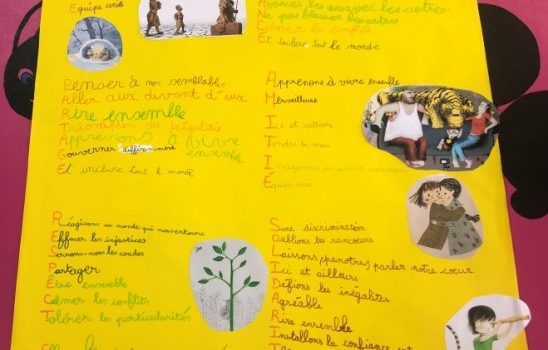 Equipe unie
Avancer les uns avec les autres
Ne pas blesser les autres
Calmer les conflits
Et inclure tout le monde
Penser à nos semblables
Aller aux devant d'eux
Rire ensemble
Triompher des inégalités
Apprenons à vivre ensemble
Gouverner différemment
Et inclure tout le monde
Apprenons à vivre ensemble
Merveilleuse
Ici et ailleurs
Tendre la main
Imaginons un avenir commun
Equipe unie
Réagissons au monde qui nous entoure
Effacer les injustices
Serrons-nous les coudes
Partager
Etre ensemble
Calmer les conflits
Tolérer les particularités
Sans discrimination
Oublions les rancoeurs
Laissons (pánotres) parler notre coeur
Ici et ailleurs
Défions les inégalités
Agréable
Rire ensemble
Installons la confiance